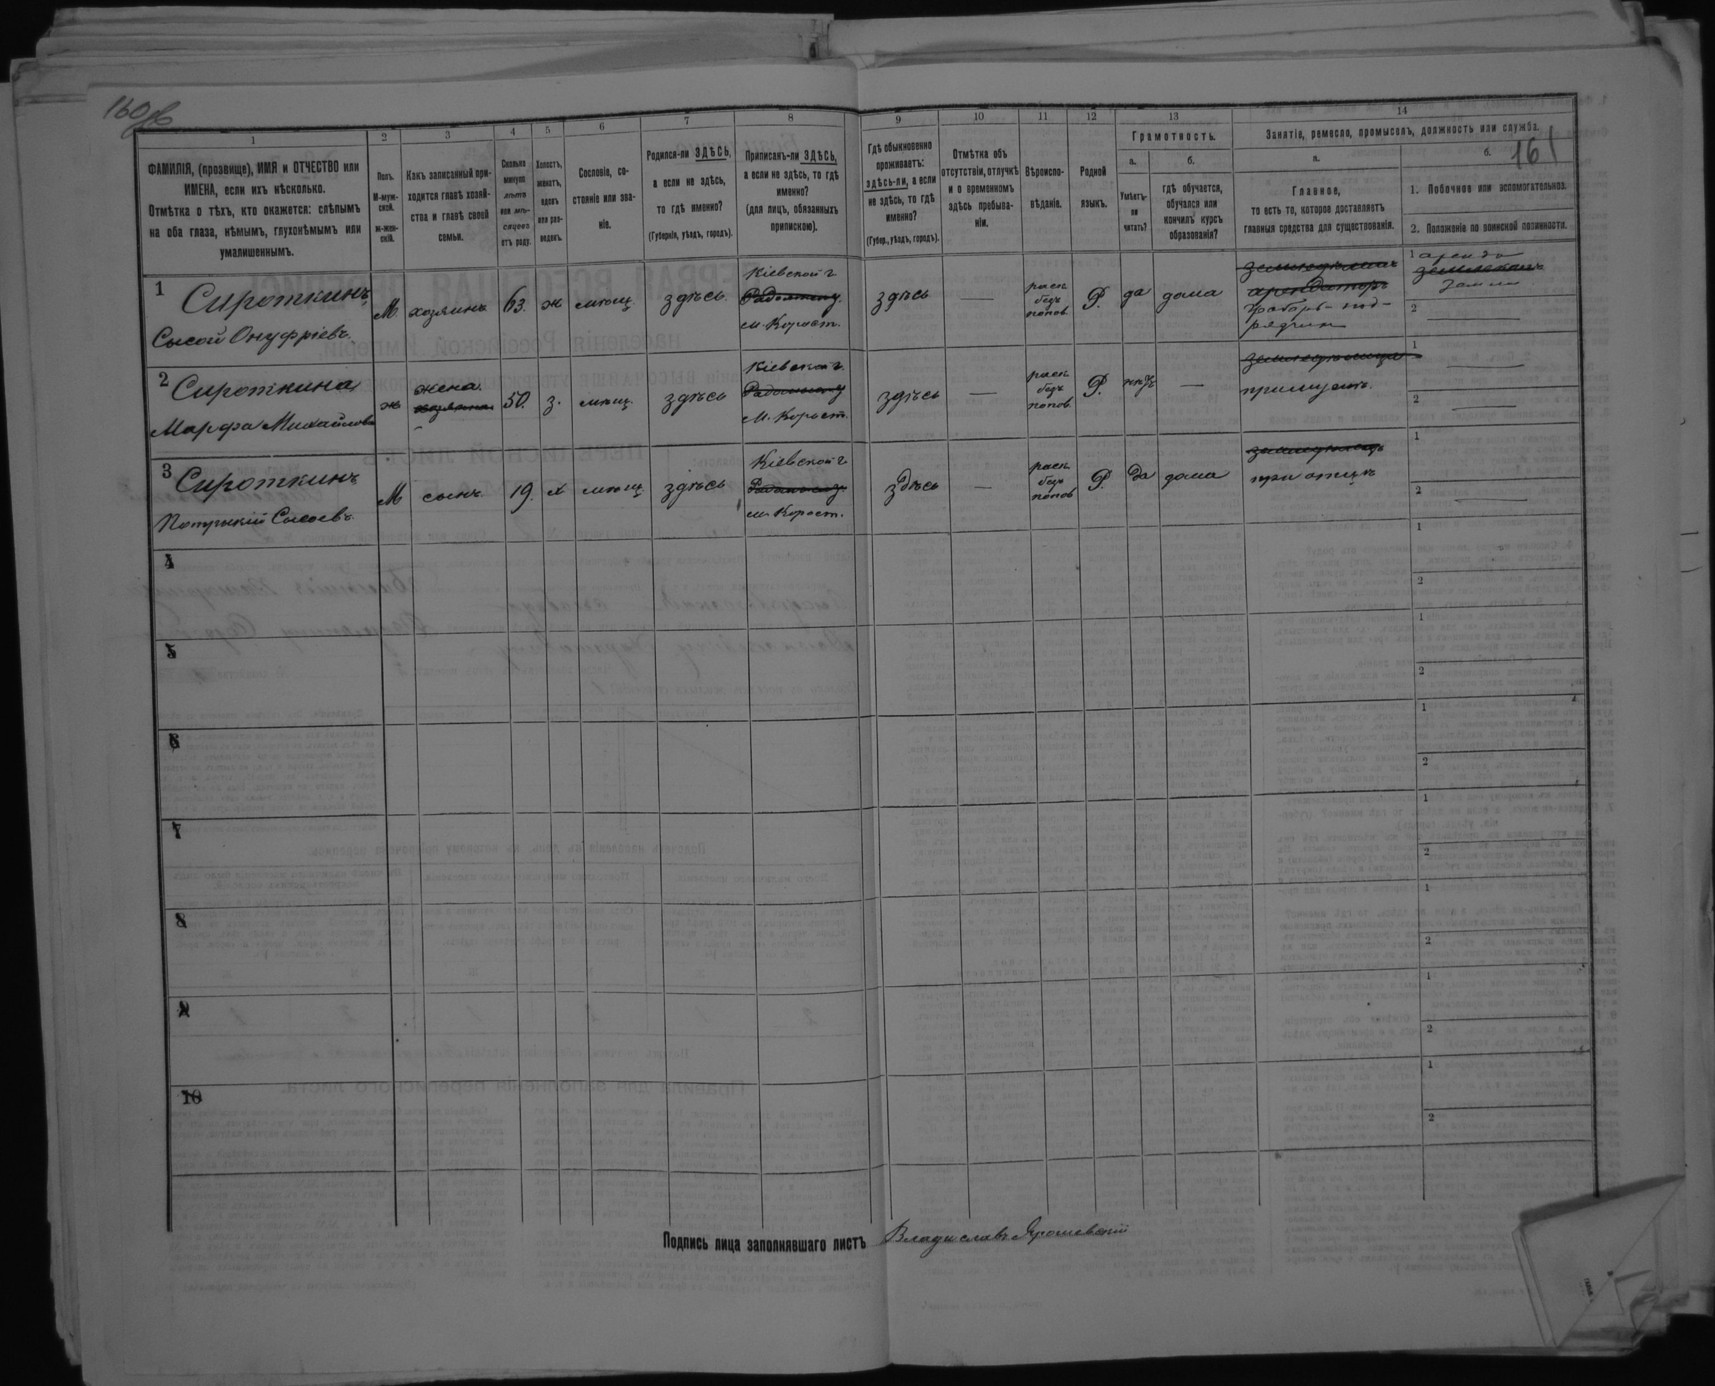 160об
161
1
2
3
4
5
6
7
8
9
10
11
12
13
14
ФАМИЛІЯ, (прозвище), ИМЯ и ОТЧЕСТВО или
ИМЕНА, если ихъ нѣсколько.
Отмѣтка о тѣхъ, кто окажется: слѣпымъ
на оба глаза, нѣмымъ, глухонѣмымъ или
умалишеннымъ.
Полъ.
М-муж-
ской.
ж-жен-
скій.
Какъ записанный при-
ходится главѣ хозяй-
ства и главѣ своей
семьи.
Сколько
минуло
лѣтъ
или мѣ-
сяцевъ
отъ роду.
Холостъ,
женатъ,
вдовъ
или раз-
веденъ.
Сословіе, со-
стояніе или зва-
ніе.
Родился-ли ЗДѢСЬ,
а если не здѣсь,
то гдѣ именно?
(Губернія, уѣздъ, городъ).
Приписанъ-ли ЗДѢСЬ,
а если не здѣсь, то гдѣ
именно?
(для лицъ, обязанныхъ
припискою).
Гдѣ обыкновенно
проживаетъ:
здѣсь-ли, а если
не здѣсь, то гдѣ
именно?
(Губер., уѣздъ, городъ).
Отмѣтка объ
отсутствіи, отлучкѣ
и о временномъ
здѣсь пребыва-
ніи.
Вѣроиспо-
вѣданіе.
Родной
языкъ.
Грамотность.
а.
Умѣетъ-
ли
читать?
б.
гдѣ обучается,
обучался или
кончилъ курсъ
образованія?
Занятіе, ремесло, промыселъ, должность или служба.
а.
Главное,
то есть то, которое доставляетъ
главныя средства для существованія.
б.
1. Побочное или вспомогательное.
2. Положеніе по воинской повинности.
1
Сироткинъ
Сысой Онуфріевъ
М
хозяинъ
63.
ж
мѣщ
здѣсь
Кіевской г
Радомысл. у.
м. Корост.
здѣсь
—
раск
безъ
попов
Р.
да
дома
земледѣлецъ
арендаторъ
под-
рядчик
1
аренда
земли
2
2
Сироткина
Марфа Михайлова
ж
жена
хозяина
50.
з.
мѣщ.
здѣсь
Кіевской г.
Радомысл. у
м. Корост.
здѣсь
—
раск
безъ
попов.
Р.
нѣтъ
—
при мужѣ.
1
2
3
Сироткинъ
Сысоевъ
М
сынъ
19.
х
мѣщ
здѣсь
Кіевской г
Радомысл. у.
м. Корост.
здѣсь
—
раск
безъ
попов
Р.
да
дома
при отцѣ
1
2
4
1
2
5
1
2
6
1
2
7
1
2
8
1
2
9
1
2
10
1
2
Подпись лица заполнявшаго листъ Владиславъ Ярошевскій